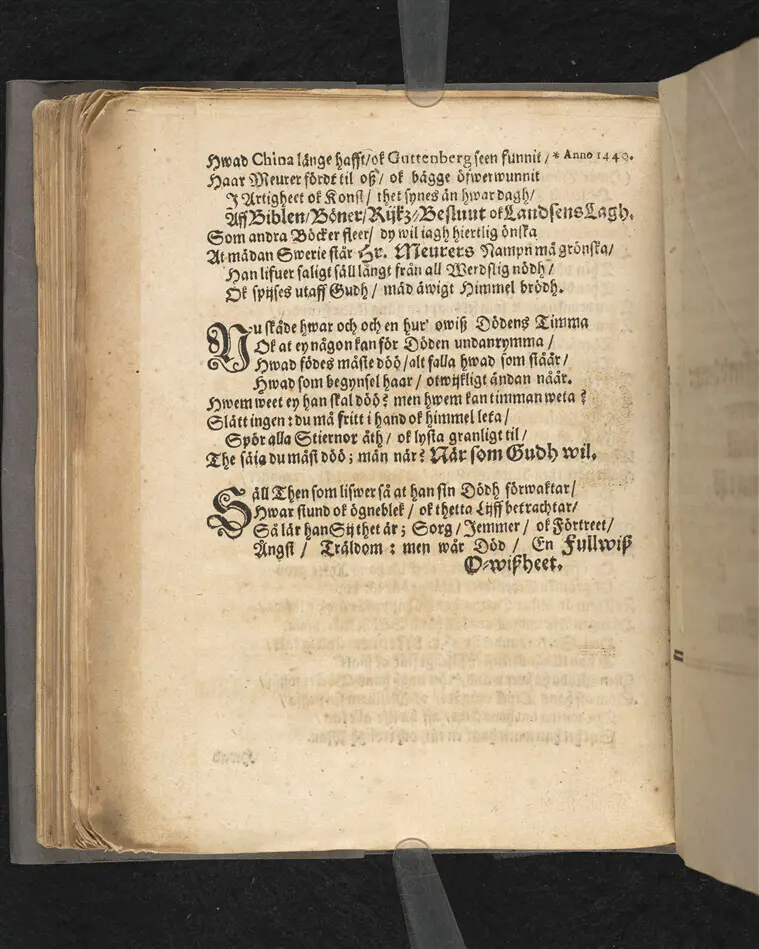 Hwad China länge hafft/ ok Guttenberg seen funnit/ * Anno 1440.
Haar Meurer fördt til oß/ ok bägge öfwerwunnit
J Artigheet ok Konst/ thet synes än hwar dagh/
Aff Biblen/ Böner/ Rijkz/ Besluut ok Landsens Lagh.
Som andra Böcker fleer/ dy wil iagh hiertlig önska
At mädan Swerie står Hr. Meurers Nampn må grönska/
Han lifuer saligt säll långt från all Werdslig nödh/
Ok spijses utaff Gudh/ mäd äwigt Himmel brödh.
Nu skåde hwar och och en hur' owiß Dödens Timma
Ok at ey någon kan för Döden undanrymma/
Hwad födes måste döö/ alt falla hwad som ståår/
Hwad som begynsel haar/ otwijkligt ändan nåår.
Hwem weet ey han skal döö? men hwem kan timman weta?
Slätt ingen: du må fritt i hand ok himmel leta/
Spör alla Stiernor åth/ ok lysta granligt til/
The säia du måst döö; män när? När som Gudh wil.
Säll Then som lifwer så at han sin Dödh förwaktar/
Hwar stund ok ögneblek/ ok thetta Lijff betrachtar/
Så lär han Sij thet är; Sorg/ Jemmer/ ok Förtreet/
Ångst/ Träldom: men wår Död/ En Fullwiß
O-wißheet.